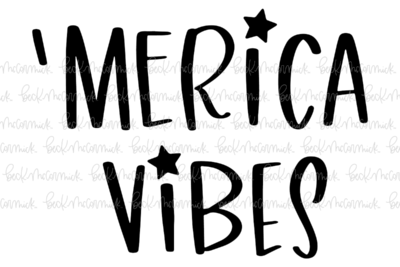 'MERiCA
ViBES